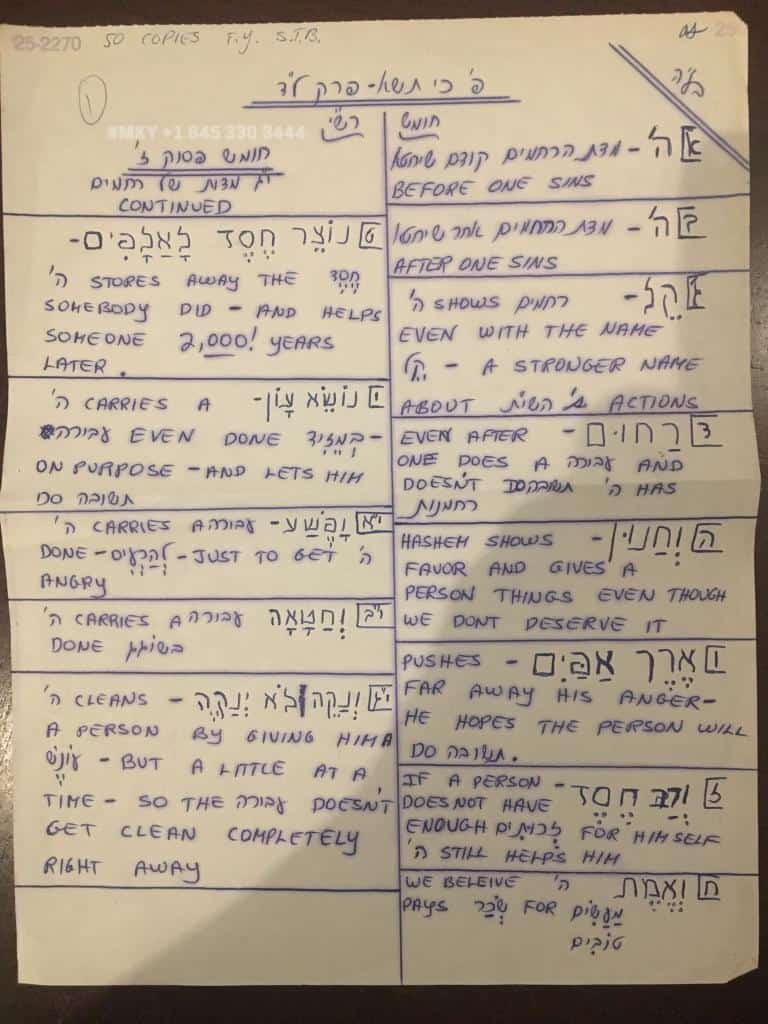 25-2270 50 COPIES F.Y. S.T.B.
25
בע"ה
פ' כי תשא - פרק ל"ד
1
#MKY +1 845 330 3444
חומש רש"י
א ה' - מדת הרחמים קודם שיחטא
BEFORE ONE SINS
ב ה' - מדת הרחמים אחר שיחטא
AFTER ONE SINS
ג קֵל - רחמים SHOWS ה'
EVEN WITH THE NAME
קֵל - A STRONGER NAME
ABOUT השי"ת'S ACTIONS
ד רַחוּם - EVEN AFTER
ONE DOES A עבירה AND
DOESN'T DO תשובה ה' HAS
רחמנות
ה וְחַנוּן - HASHEM SHOWS
FAVOR AND GIVES A
PERSON THINGS EVEN THOUGH
WE DONT DESERVE IT
ו אֶרֶךְ אַפַּיִם - PUSHES
FAR AWAY HIS ANGER-
HE HOPES THE PERSON WILL
DO תשובה.
ז וְרַב חֶסֶד - IF A PERSON
DOES NOT HAVE
ENOUGH זְכוּתִים FOR HIMSELF
ה' STILL HELPS HIM
ח וֶאֱמֶת WE BELEIVE ה'
PAYS שְׂכַר FOR מַעֲשִׂים
טוֹבִים
חומש פסוק ז'
י"ג מדות של רחמים
CONTINUED
ט נוֹצֵר חֶסֶד לָאֲלָפִים-
ה' STORES AWAY THE חֶסֶד
SOMEBODY DID - AND HELPS
SOMEONE 2,000! YEARS
LATER.
י נוֹשֵׂא עָוֹן - ה' CARRIES A
עבירה EVEN DONE בְּמֵזִיד -
ON PURPOSE - AND LETS HIM
DO תשובה
י"א וָפֶשַׁע - ה' CARRIES A עבירה
DONE - לְהַכְעִיס - JUST TO GET ה'
ANGRY
י"ב וְחַטָאָה ה' CARRIES A עבירה
DONE בשוגג
י"ג וְנַקֵה לֹא יְנַקֶה - ה' CLEANS
A PERSON BY GIVING HIM A
עוֹנֶשׁ - BUT A LITTLE AT A
TIME - SO THE עבירה DOESN'T
GET CLEAN COMPLETELY
RIGHT AWAY